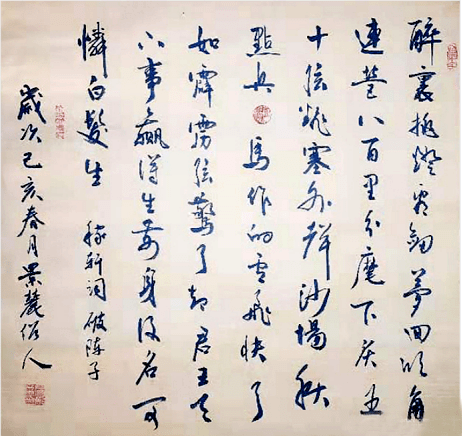 醉裏挑燈看劍夢回吹角
連營八百里分麾下炙五
十弦翻塞外聲沙場秋
點兵 馬作的盧飛快弓
如霹靂弦驚了却君王天
下事贏得生前身後名可
憐白髮生 稼軒詞破陣子
歲次己亥春月景麓俗人